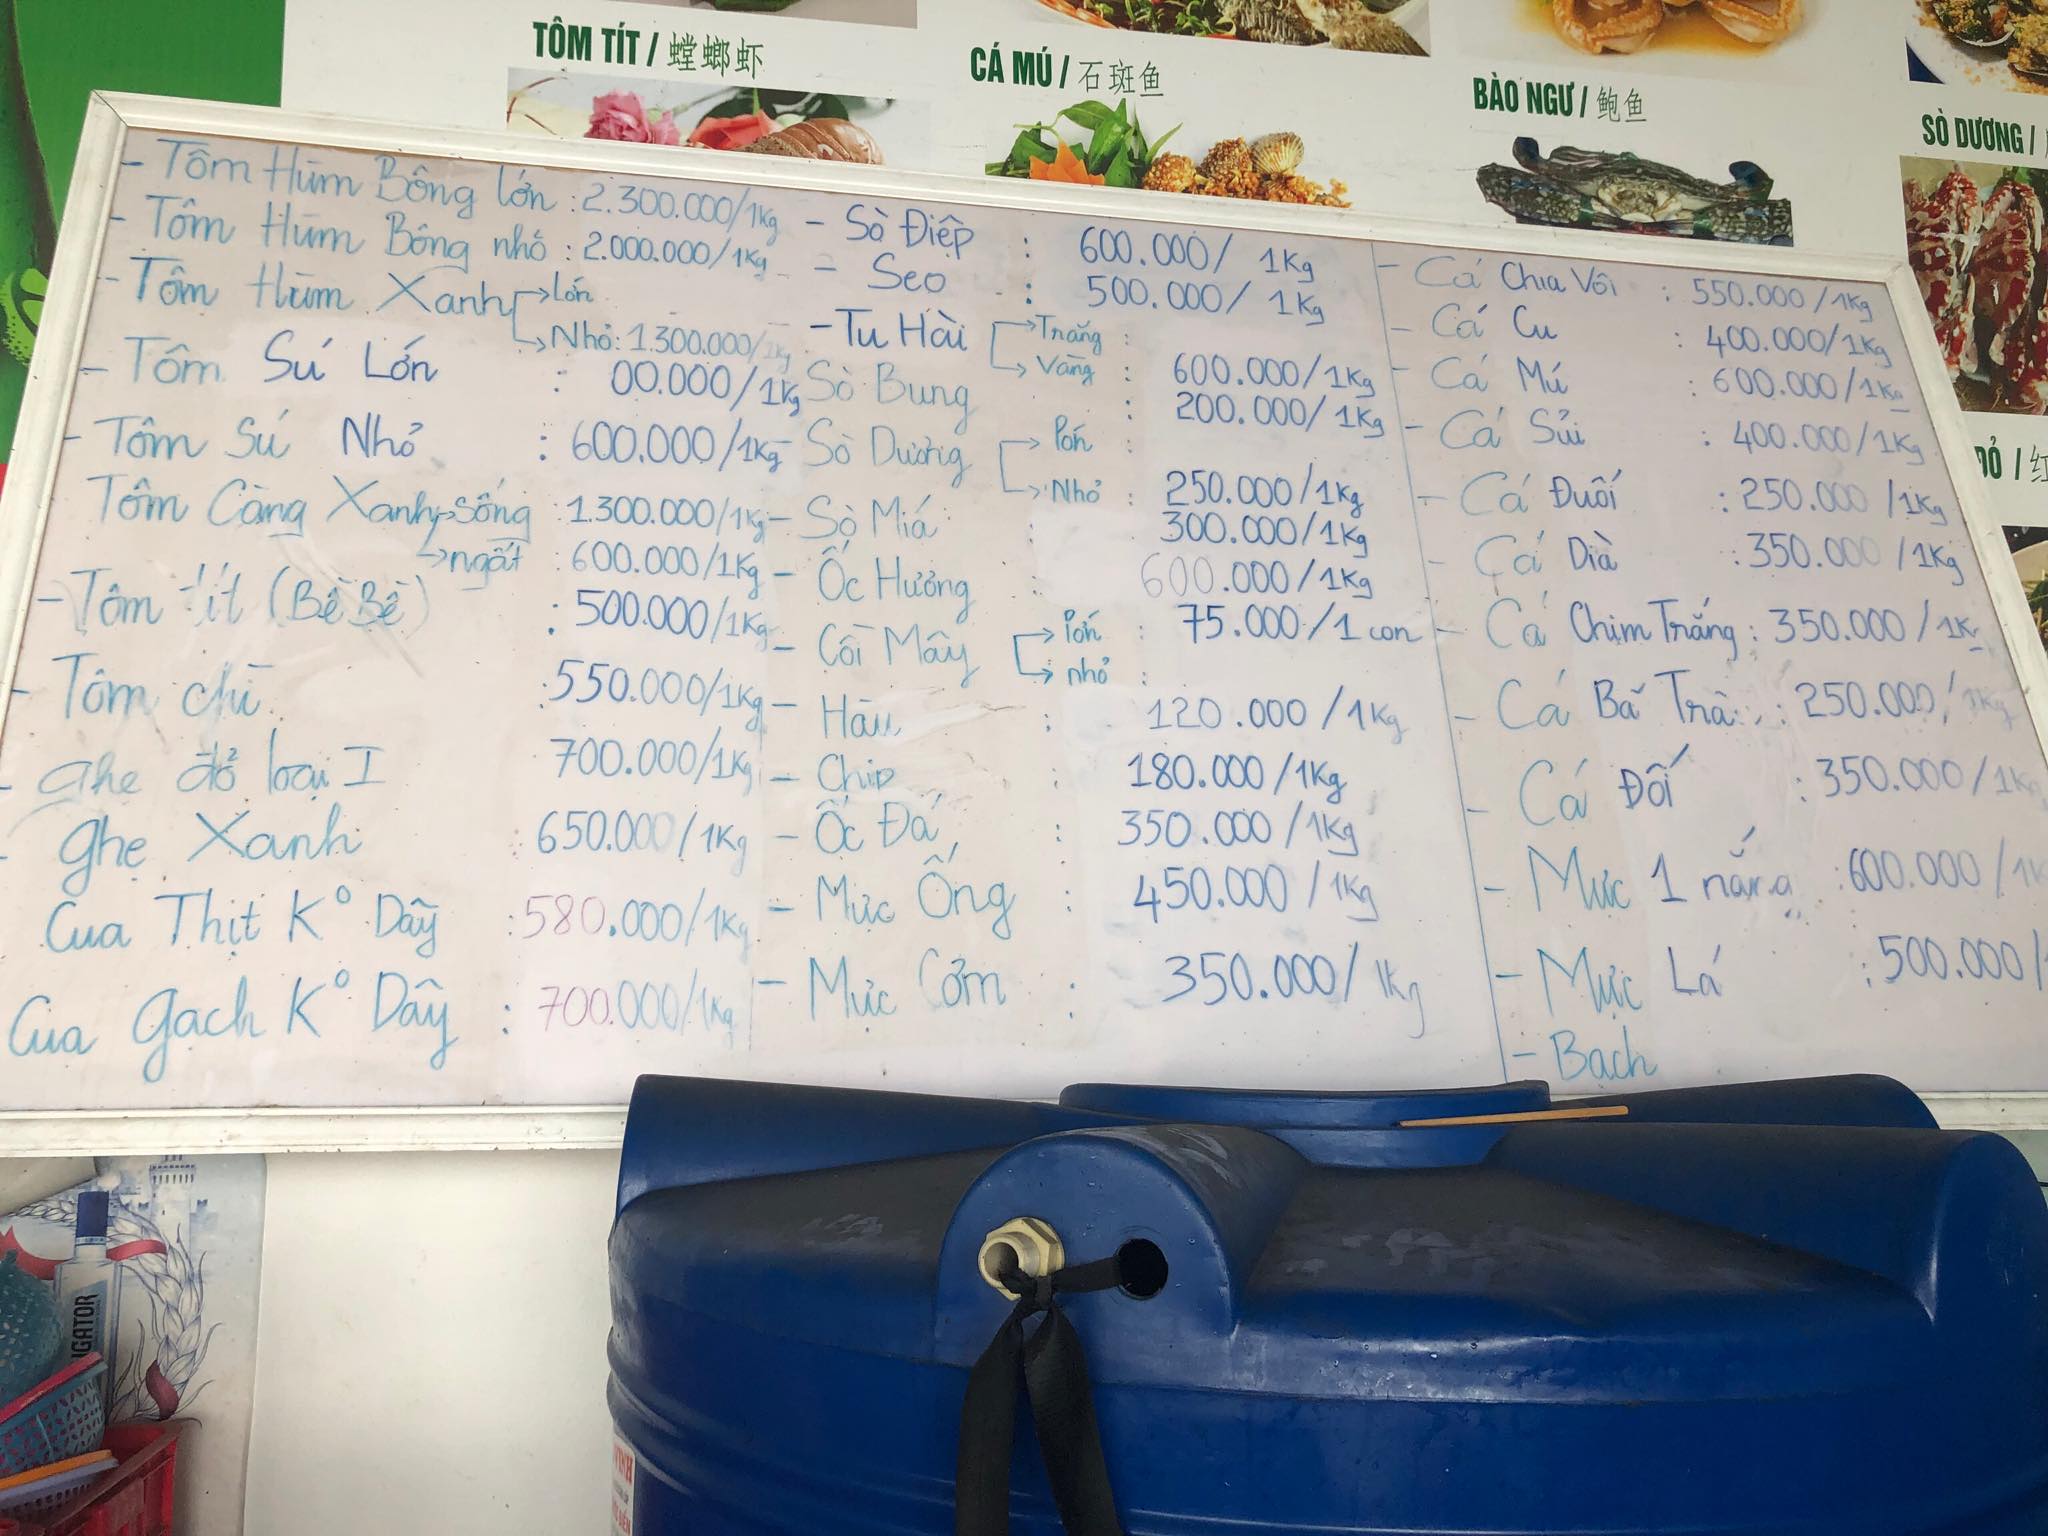 TÔM TÍT / 螳螂虾
CÁ MÚ / 石斑鱼
BÀO NGƯ / 鲍鱼
SÒ DƯƠNG /
ĐỎ / 红
- Tôm Hùm Bông lớn : 2.300.000/1Kg
- Tôm Hùm Bông nhỏ : 2.000.000/1Kg
- Tôm Hùm Xanh → Lớn
→ Nhỏ: 1.300.000/1Kg
- Tôm Sú Lớn : 00.000/1Kg
- Tôm Sú Nhỏ : 600.000/1Kg
Tôm Càng Xanh → sống : 1.300.000/1Kg
→ ngất : 600.000/1Kg
- Tôm tít (Bề Bề) : 500.000/1Kg
- Tôm chì : 550.000/1Kg
- Ghẹ đỏ loại I 700.000/1Kg
- Ghẹ Xanh : 650.000/1Kg
Cua Thịt K° Dây : 580.000/1Kg
Cua Gạch K° Dây : 700.000/1Kg
- Sò Điệp : 600.000/ 1Kg
- Seo : 500.000/ 1Kg
- Tu Hài → Trắng :
→ Vàng : 600.000/1Kg
Sò Bung : 200.000/1Kg
- Sò Dương → lớn :
→ Nhỏ : 250.000/1Kg
- Sò Miá : 300.000/1Kg
- Ốc Hương : 600.000/1Kg
- Cồi Mây → lớn : 75.000/1 con
→ nhỏ :
- Hàu : 120.000/1Kg
- Chip 180.000/1Kg
- Ốc Đá : 350.000/1Kg
- Mực Ống : 450.000/1Kg
- Mực Cơm : 350.000/ 1Kg
- Cá Chìa Vôi : 550.000/1Kg
- Cá Cu : 400.000/1Kg
- Cá Mú : 600.000/1Kg
- Cá Sủi : 400.000/1Kg
- Cá Đuối : 250.000/1Kg
- Cá Dìa : 350.000/1Kg
- Cá Chim Trắng : 350.000/1K
- Cá Bã Trầ : 250.000/1Kg
- Cá Đối : 350.000/1K
- Mực 1 nắng : 600.000/1K
- Mực Lá : 500.000/
- Bạch
IGATOR